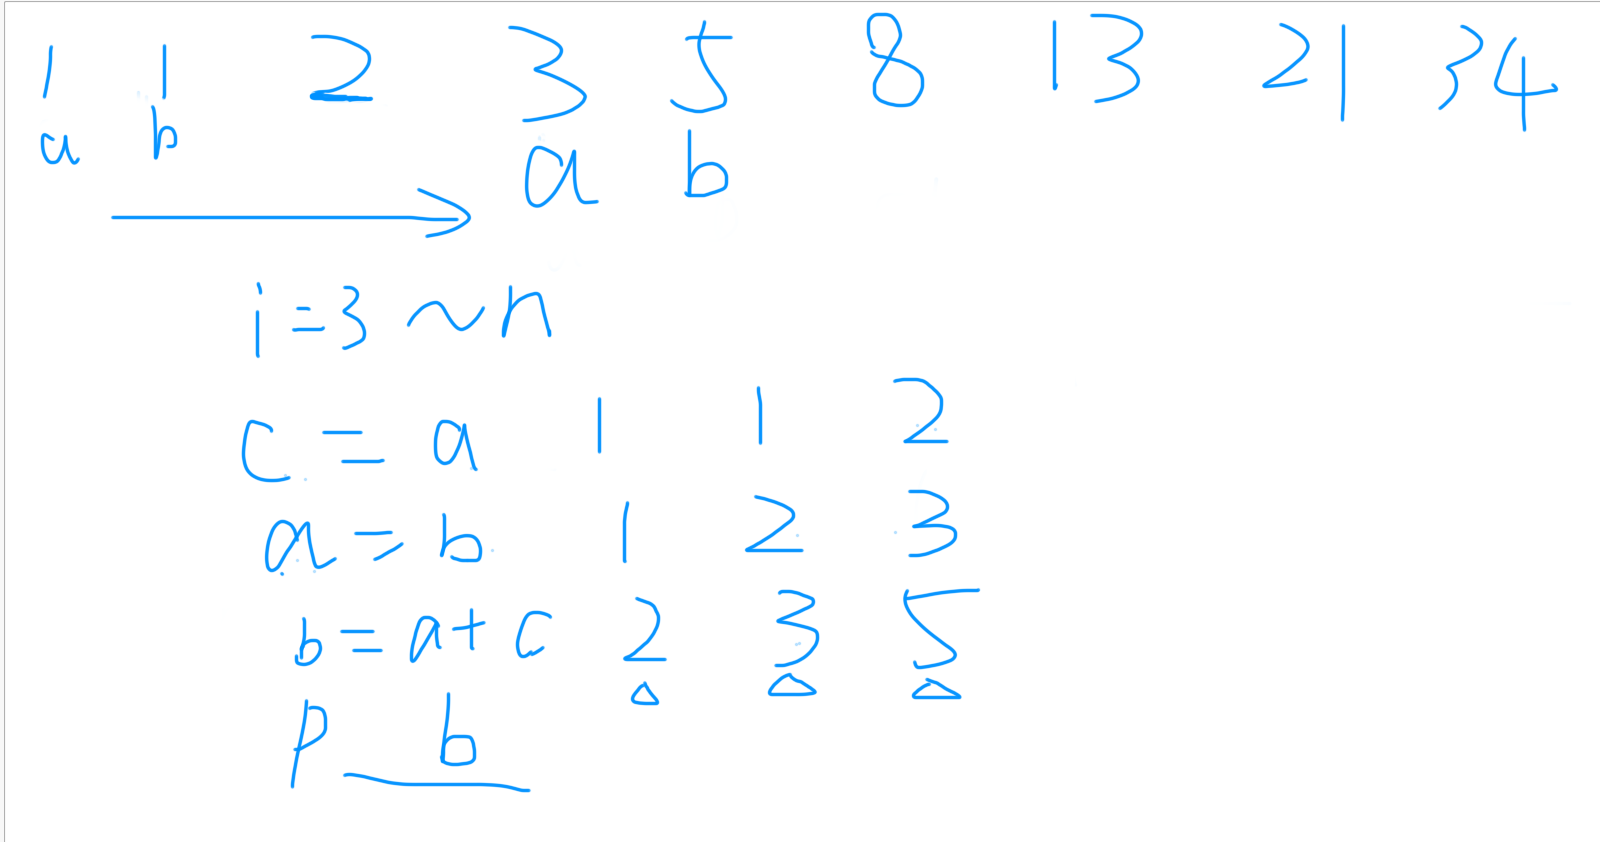 1 1 2 3 5 8 13 21 34
a b a b
i=3 ~ n
c = a 1 1 2
a = b 1 2 3
b = a + c 2 3 5
p b